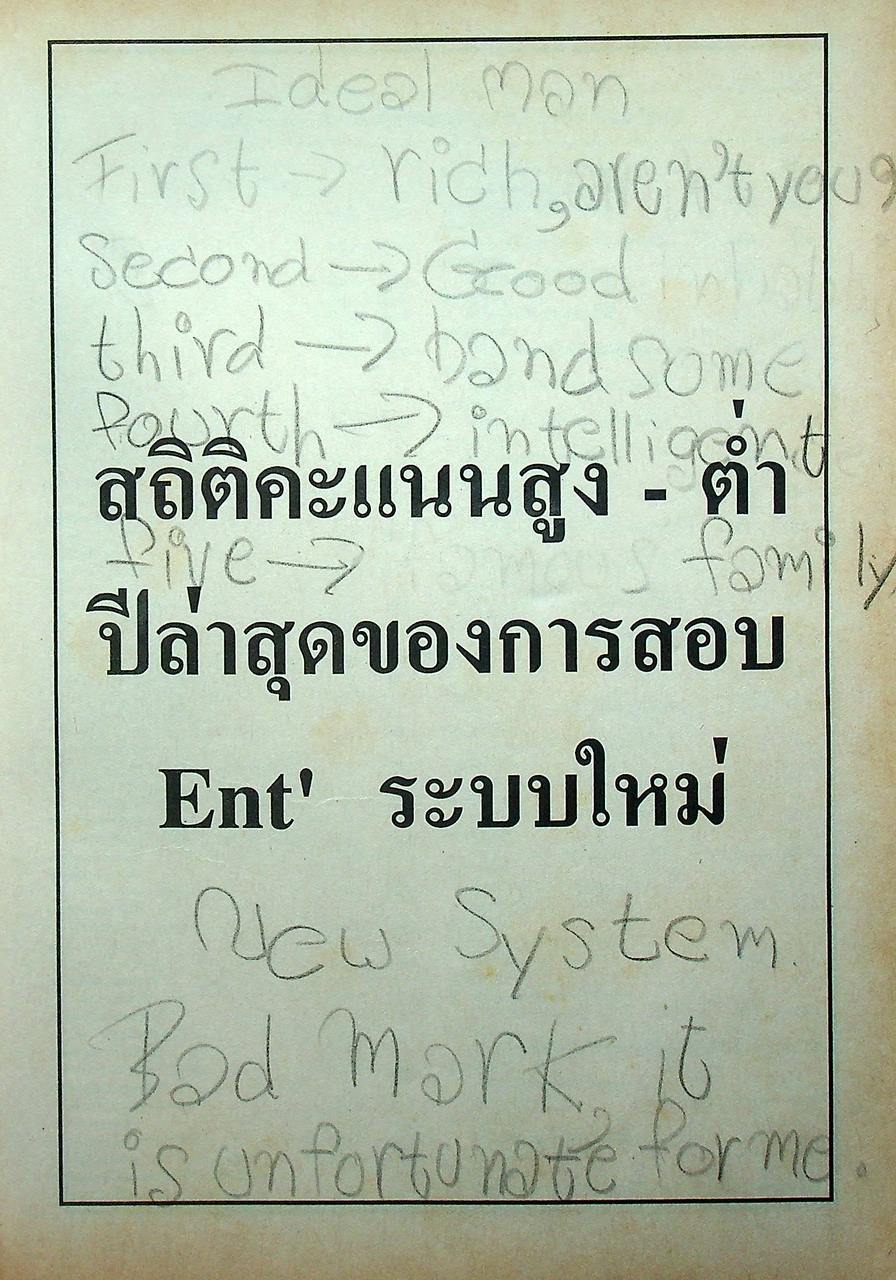 Ideal man
First → rich, aren't you?
Second → Good
third → handsome
fourth → intelligent
สถิติคะแนนสูง - ต่ำ
five → famous family
ปีล่าสุดของการสอบ
Ent' ระบบใหม่
New System.
Bad Mark, it
is unfortunate for me.